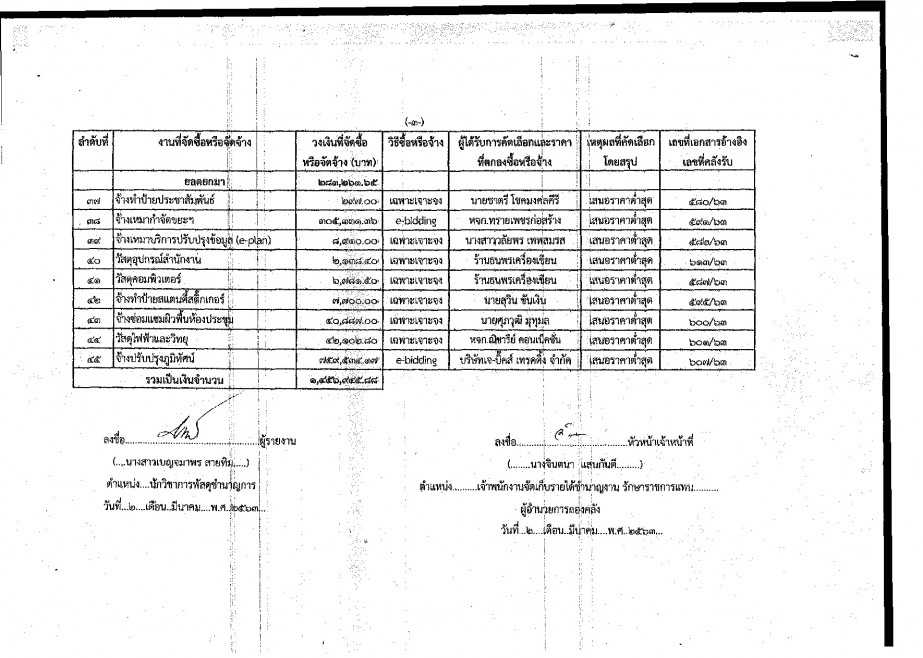 (-๓-)
ลำดับที่ งานที่จัดซื้อหรือจัดจ้าง วงเงินที่จัดซื้อ วิธีซื้อหรือจ้าง ผู้ได้รับการคัดเลือกและราคา เหตุผลที่คัดเลือก เลขที่เอกสารอ้างอิง
หรือจัดจ้าง (บาท) ที่ตกลงซื้อหรือจ้าง โดยสรุป เลขที่คลังรับ
ยอดยกมา ๒๘๓,๒๖๓.๖๕
๓๗ จ้างทำป้ายประชาสัมพันธ์ ๒๙๗.๐๐ เฉพาะเจาะจง นายชาตรี โชคมงคลคีรี เสนอราคาต่ำสุด ๕๘๐/๖๓
๓๘ จ้างเหมากำจัดขยะฯ e-bidding หจก.ทรายเพชรก่อสร้าง เสนอราคาต่ำสุด ๕๙๑/๖๓
๓๙ จ้างเหมาบริการปรับปรุงข้อมูล (e-plan) ๘,๙๑๐.๐๐ เฉพาะเจาะจง นางสาววลัยพร เทพสมรส เสนอราคาต่ำสุด
๔๐ วัสดุอุปกรณ์สำนักงาน เฉพาะเจาะจง ร้านธนพรเครื่องเขียน เสนอราคาต่ำสุด ๖๑๓/๖๓
๔๑ วัสดุคอมพิวเตอร์ ๖,๗๘๑.๕๐ เฉพาะเจาะจง ร้านธนพรเครื่องเขียน เสนอราคาต่ำสุด ๕๘๗/๖๓
๔๒ จ้างทำป้ายสแตนดี้สติ๊กเกอร์ ๗,๗๐๐.๐๐ เฉพาะเจาะจง นายสุวิน ขันเงิน เสนอราคาต่ำสุด ๕๙๕/๖๓
๔๓ จ้างซ่อมแซมผิวพื้นห้องประชุม ๔๐,๘๘๗.๐๐ เฉพาะเจาะจง นายศุภวุฒิ มุทุมล เสนอราคาต่ำสุด ๖๐๐/๖๓
๔๔ วัสดุไฟฟ้าและวิทยุ ๔๒,๑๐๒.๘๐ เฉพาะเจาะจง หจก.ณิชารีย์ คอนเน็คชั่น เสนอราคาต่ำสุด ๖๐๑/๖๓
๔๕ จ้างปรับปรุงภูมิทัศน์ ๗๕๙,๕๓๔.๑๗ e-bidding บริษัทเจ-บิ๊คส์ เทรดดิ้ง จำกัด เสนอราคาต่ำสุด ๖๐๗/๖๓
รวมเป็นเงินจำนวน ๑,๔๕๖,๙๔๕.๘๘
ลงชื่อ..........ผู้รายงาน ลงชื่อ..........หัวหน้าเจ้าหน้าที่
(.....นางสาวเบญจมาพร สายทิม.....) (........นางจินตนา แสนกันดี........)
ตำแหน่ง....นักวิชาการพัสดุชำนาญการ ตำแหน่ง..........เจ้าพนักงานจัดเก็บรายได้ชำนาญงาน รักษาราชการแทน..........
วันที่...๒....เดือน..มีนาคม....พ.ศ..๒๕๖๓... ผู้อำนวยการกองคลัง
วันที่...๒....เดือน..มีนาคม....พ.ศ..๒๕๖๓...